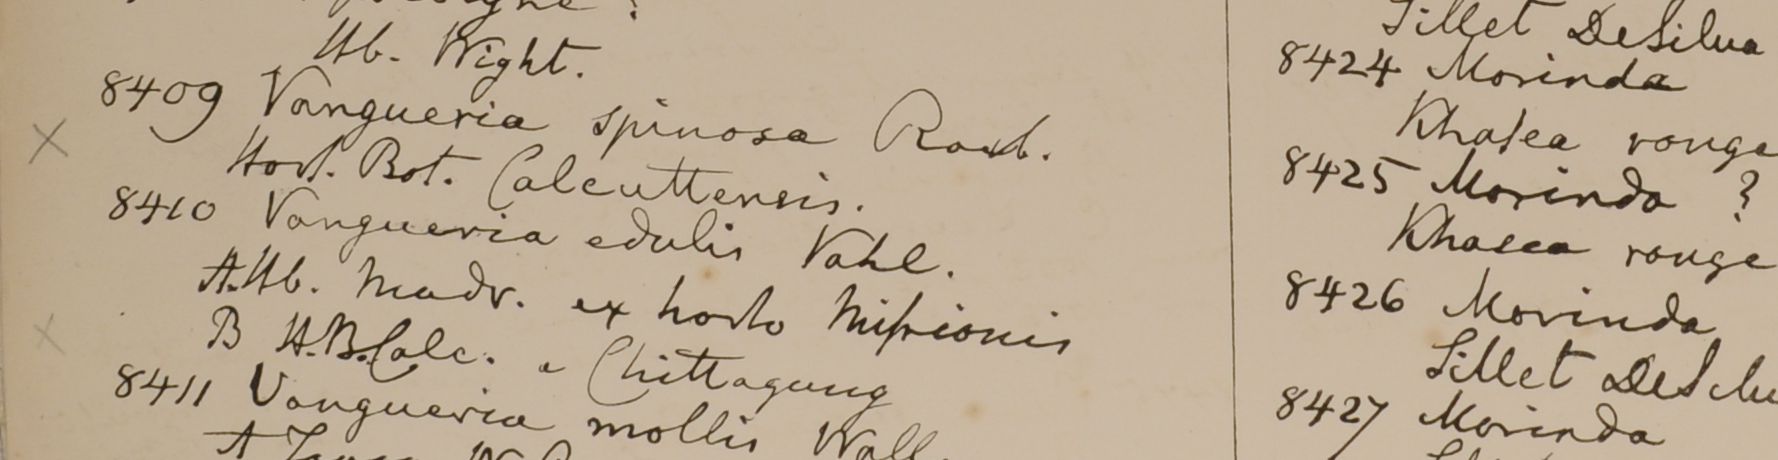 Hb. Wight.
8409 Vangueria spinosa Roxb.
Hort. Bot. Calcuttensis.
8410 Vangueria edulis Vahl.
A. Hb. Madr. ex horto Missionis
B H.B. Calc. e Chittagung
8411 Vangueria mollis Wall.
A
Sillet DeSilva
8424 Morinda
Khasea rouge
8425 Morinda ?
Khasea rouge
8426 Morinda
Sillet DeSilu
8427 Morinda